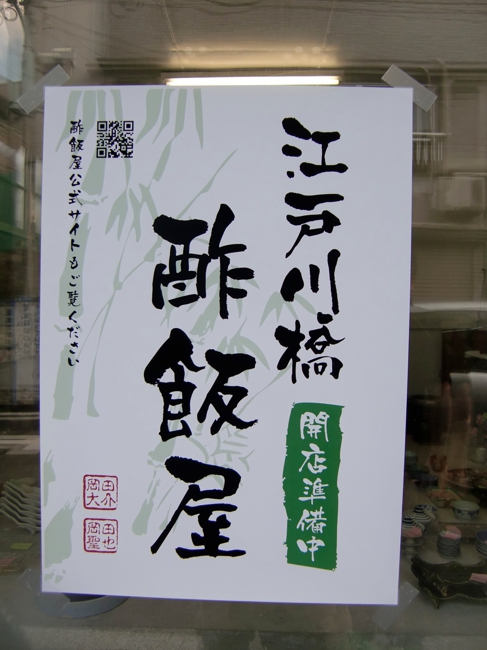 江戸川橋
開店準備中
酢飯屋
酢飯屋公式サイトもご覧ください
岡田大介
岡田聖也